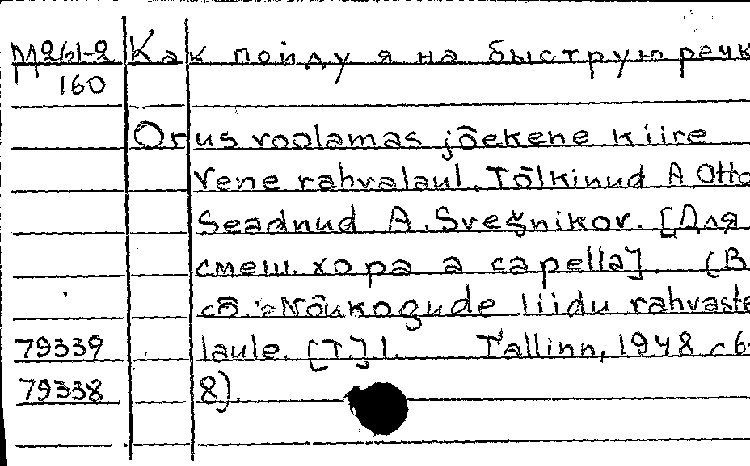 М261-2 Как пойду я на быструю речк
160
Orus voolamas jõekene kiire
Vene rahvalaul. Tõlkinud A Otto
Seadnud A. Svešnikov. [Для
смеш. хора a capella]. (В
сб.: Nõukogude liidu rahvaste
79339 laule. [T.] 1. Tallinn, 1948 с 6-
79338 8).